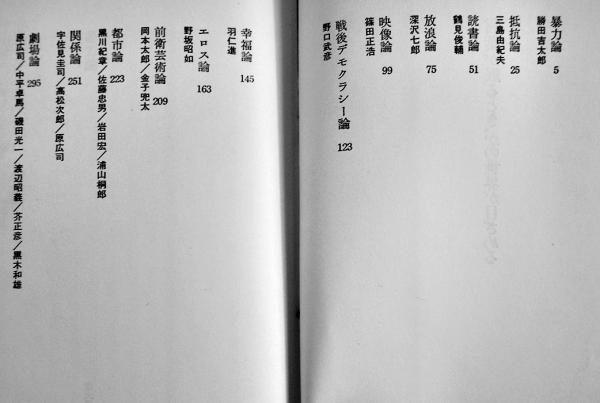 暴力論 5
勝田吉太郎
抵抗論 25
三島由紀夫
読書論 51
鶴見俊輔
放浪論 75
深沢七郎
映像論 99
篠田正浩
戦後デモクラシー論 123
野口武彦
幸福論 145
羽仁進
エロス論 163
野坂昭如
前衛芸術論 209
岡本太郎／金子兜太
都市論 223
黒川紀章／佐藤忠男／岩田宏／浦山桐郎
関係論 251
宇佐見圭司／高松次郎／原広司
劇場論 295
原広司／中平卓馬／磯田光一／渡辺昭義／芥正彦／黒木和雄